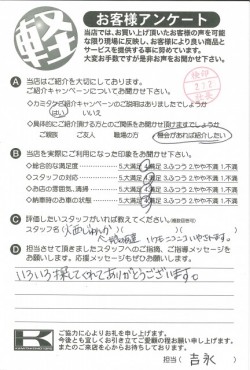 軽
お客様アンケート
当店では、よりお買い求め頂いたお客様の声を可能
な限り現場に反映し、お客様により良い商品と
サービスを提供する事に努めています。
大変お手数ですが是非お声をお聞かせ下さい。
A 当店はご紹介を大切にしております。
ご紹介キャンペーンについてお聞かせ下さい
・カミタケご紹介キャンペーンのご説明はありましたでしょうか
はい いいえ
・具体的にご紹介頂ける方とのご関係をお聞かせ頂けますでしょうか
ご親族 ご友人 職場の方 機会があれば紹介したい
B 当店を実際にご利用になった印象をお聞かせ下さい。
◇総合的な満足度 5.大満足 4.満足 3.ふつう 2.やや不満 1.不満
◇スタッフの対応 5.大満足 4.満足 3.ふつう 2.やや不満 1.不満
◇お店の雰囲気、清掃 5.大満足 4.満足 3.ふつう 2.やや不満 1.不満
◇納車時のお車の状態 5.大満足 4.満足 3.ふつう 2.やや不満 1.不満
C 評価したいスタッフがいれば教えてください。(複数回答可)
スタッフ名
D 担当させて頂きましたスタッフへのご指摘、ご指導メッセージを
お願いします。応援メッセージもぜひお願いします。
いろいろ探してくれてありがとうございます。
K
ご協力に心よりお礼を申し上げます。
今後とも宜しくお引き立てご愛顧の程お願い申し上げます。
またのご来店を心からお待ちしております。
担当( 吉永 )